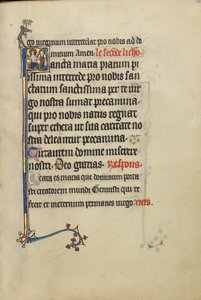 et intercedat pro nobis ad do
minum Amen. le seconde lechon
Sancta maria piarum pi
issima intercede pro nobis san
ctarum sanctissima per te uir
go nostra sumat precamina
qui pro nobis natus regnat
super ethera ut sua caritate no
stra deleantur peccamina.
Tu autem domine miserere
nostri. Deo gratias. Respons.
Beata es maria que dominum porta
sti creatorem mundi Genuisti qui te
fecit et in eternum permanes uirgo vers.